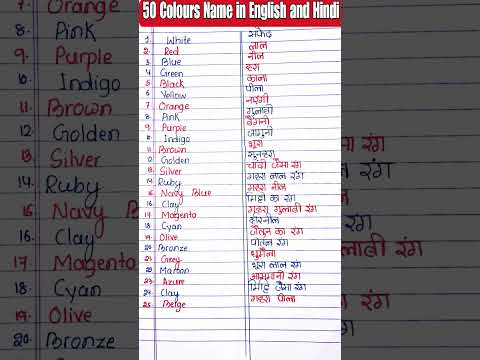 50 Colours Name in English and Hindi
1. White सफेद
2. Red लाल
3. Blue नीला
4. Green हरा
5. Black काला
6. Yellow पीला
7. Orange नारंगी
8. Pink गुलाबी
9. Purple बैंगनी
10. Indigo जामुनी
11. Brown भूरा
12. Golden सुनहरा
13. Silver चाँदी जैसा रंग
14. Ruby गहरा लाल रंग
15. Navy Blue गहरा नीला
16. Clay मिट्टी का रंग
17. Magenta गहरा गुलाबी रंग
18. Cyan हरिनील
19. Olive जैतून का रंग
20. Bronze पीतल रंग
21. Grey धूमैला
22. Maroon भूरा लाल रंग
23. Azure आसमानी रंग
24. Clay मिट्टि जैसा रंग
25. Beige गहरा पीला
7. Orange
8. Pink
9. Purple
10. Indigo
11. Brown
12. Golden
13. Silver
14. Ruby
15. Navy B
16. Clay
17. Magenta
18. Cyan
19. Olive
20. Bronze
सा रंग
रंग
लाबी रंग